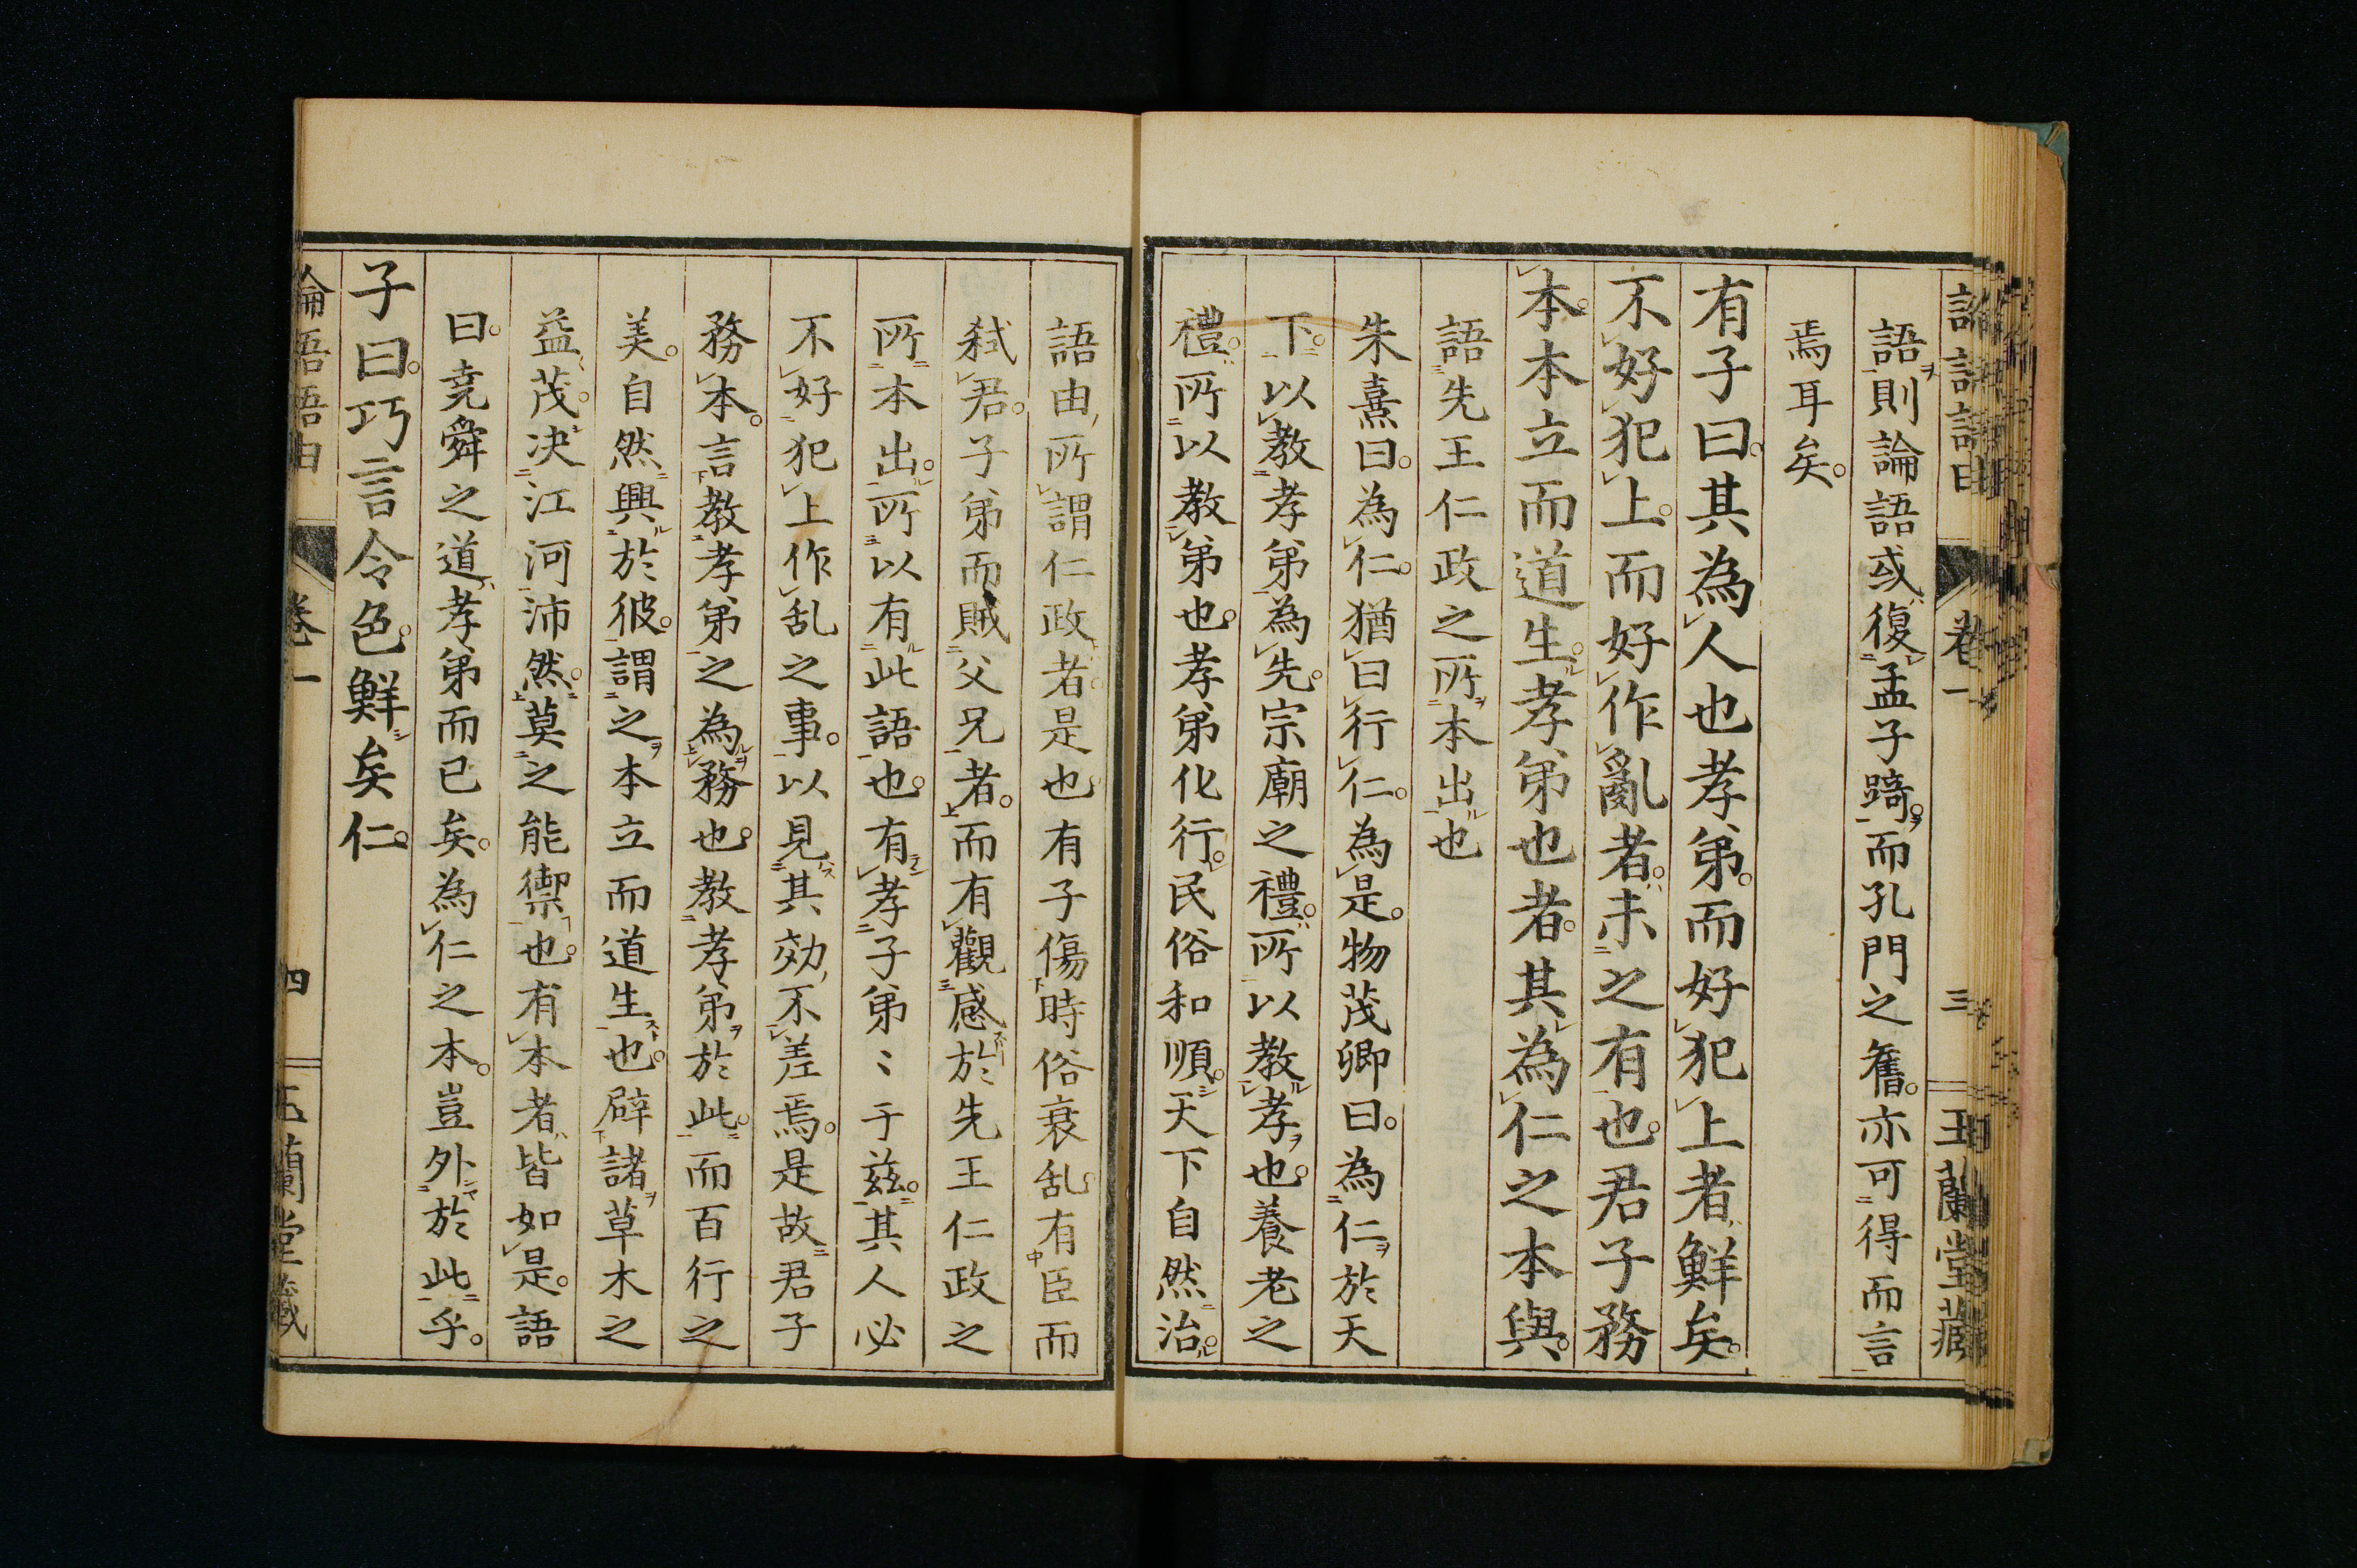 論語語由
卷一
三
玉蘭堂藏
語則論語或復孟子踦而孔門之舊亦可得而言
焉耳矣
有子曰其為人也孝弟而好犯上者鮮矣
不好犯上而好作亂者未之有也君子務
本本立而道生孝弟也者其為仁之本與
語先王仁政之所本出也
朱熹曰為仁猶曰行仁為是物茂卿曰為仁於天
下以教孝弟為先宗廟之禮所以教孝也養老之
禮所以教弟也孝弟化行民俗和順天下自然治
語由所謂仁政者是也有子傷時俗衰乱有臣而
弑君子弟而賊父兄者而有觀感於先王仁政之
所本出所以有此語也有孝子弟〻于茲其人必
不好犯上作乱之事以見其効不差焉是故君子
務本言教孝弟之為務也教孝弟於此而百行之
美自然興於彼謂之本立而道生也辟諸草木之
益茂决江河沛然莫之能禦也有本者皆如是語
曰堯舜之道孝弟而已矣為仁之本豈外於此乎
子曰巧言令色鮮矣仁
論語語由
卷一
四
玉蘭堂藏